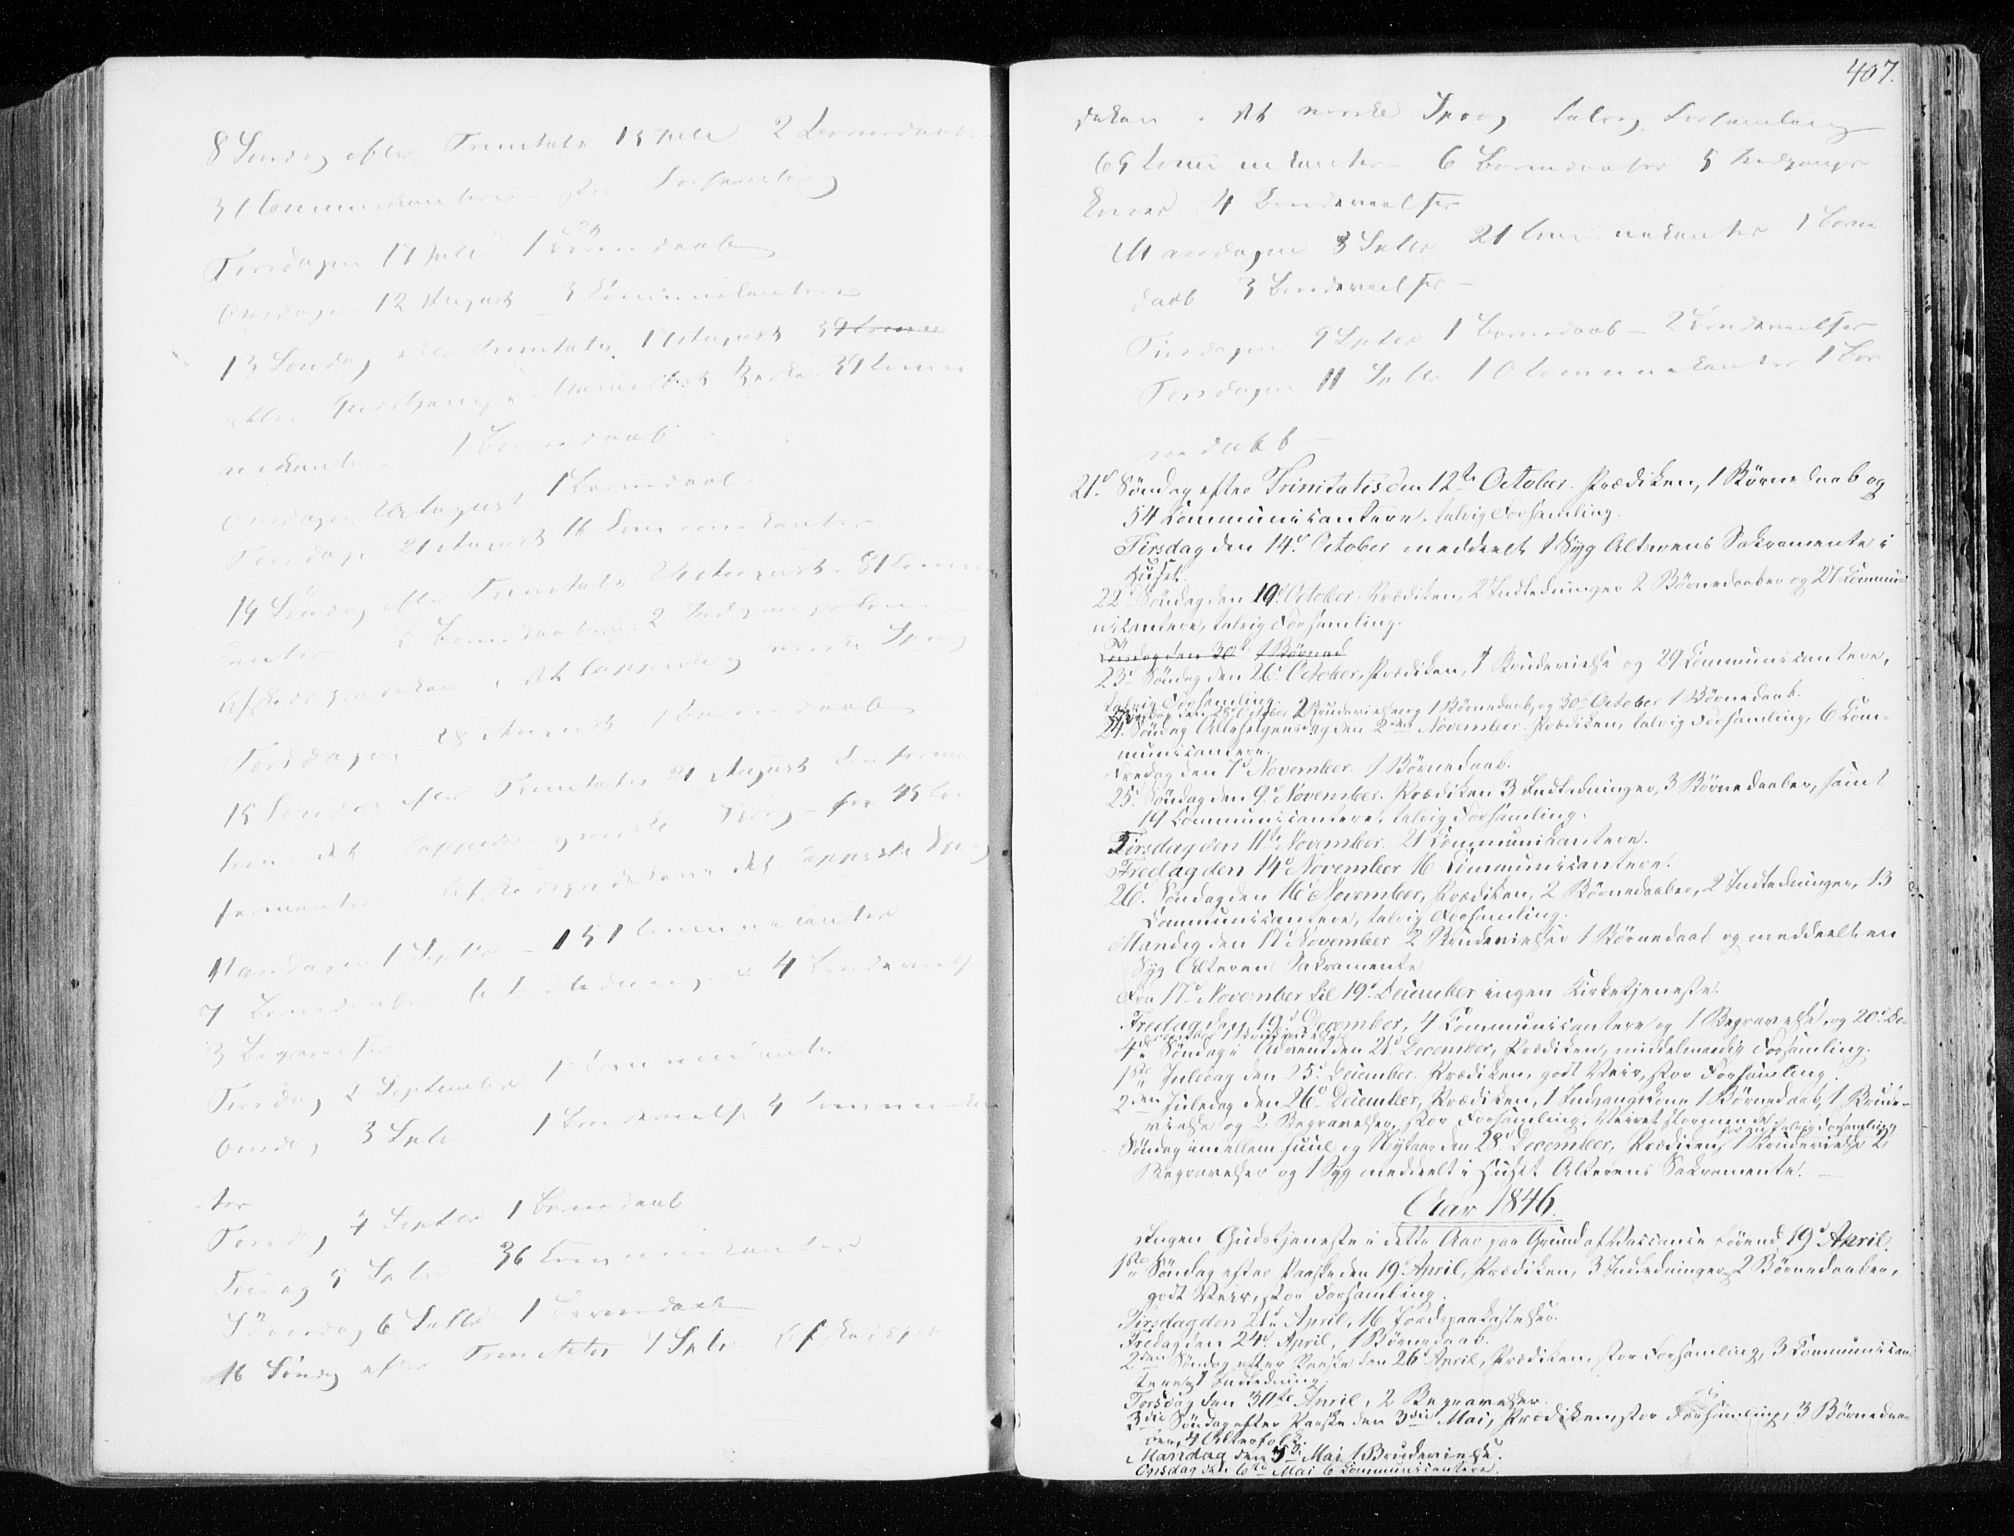 8 Søndag efter Trinitatis 13 Juli 2 Børnedaab
31 Communicantere - stor Forsamling
Torsdagen 17 Juli 1 Børnedaab
Onsdagen 12 August 3 Communicantere
13 Søndag efter Trinitatis 17 August 39 Comm
39 Commu
nikanter 1 Børnedaab
Onsdagen 20 August 1 Børnedaab
Torsdagen 21 August 16 Communikanter
14 Søndag efter Trinitatis 24 August 81 Commu
kanter 2 Børnedaaber 2 Indgangskoner
Afskedsprædiken i det lappiske og norske Sprog
Torsdagen 28 August 1 Børnedaab
15 Søndag efter Trinitatis 31 August Confirma
tion i det lappiske og norske Sprog - for 45 Con
firmanter Afskedsprædiken i det lappiske Sprog
Mandagen 1 Septbr - 151 Communicanter
7 Børnedaaber 6 Indledninger 4 Brudevielser
3 Begravelser
Tirsdag 2 September 1 Communikanter
Onsdag 3 Septbr 1 Brudevielse 4 Communikan
ter
Torsdag 4 Septbr 1 Børnedaab
Fredag 5 Septbr 36 Communikanter
Löverdag 6 Septbr 1 Børnedaab
16 Søndag efter Trinitatis 7 Septbr Afskedspræ
407.
diken i det norske Sprog talrig Forsamling
65 Communikanter - 6 Børnedaaber 5 Indgangs
koner 4 Brudevielser
Mandagen 8 Septbr 21 Communikanter 1 Børne
daab 3 Brudevielser -
Tirsdagen 9 Septbr 1 Børnedaab - 2 Brudevielser
Torsdagen 11 Septbr 10 Communikanter 1 Bør
nedaab -
21d Søndag efter Trinitatis den 12te October. Prædiken, 1 Børnedaab og
54 Communicantere, talrig Forsamling.
Tirsdag den 14d October meddeelt 1 Syg Alterens Sakramente i
Huset.
22d Søndag den 19d October, Prædiken, 2 Indledninger 2 Børnedaaber og 27 Commu-
nicantere, talrig Forsamling.
den 30d 1 Børned
23d Søndag den 26d October, Prædiken, 1 Brudevielse og 29 Communicantere,
talrig Forsamling.
Tirsdag den 28 October 2 Brudevielser og 1 Børnedaab, og 30d October 1 Børnedaab.
24d Søndag Allehelgensdag den 2den November. Prædiken, talrig Forsamling, 6 Com-
municantere.
Fredag den 7d November. 1 Børnedaab.
25d Søndag den 9d November. Prædiken 3 Indledninger, 3 Børnedaaber, samt
19 Communicantere, talrig Forsamling.
Tirsdag den 11te November. 21 Communicantere.
Fredag den 14d November 16 Communicantere.
26d. Søndag den 16d November, Prædiken, 2 Børnedaaber, 2 Indledninger, 13
Communicantere, talrig Forsamling.
Mandag den 17d November 2 Brudevielser 1 Børnedaab og meddeelt en
Syg Alterens Sakramente
Fra 17d November til 19d December ingen Kirketjeneste.
Fredag den 19d December, 4 Communicantere og 1 Begravelse, og 20d De-
cember 1 Brudevielse.
4de Søndag i Advent den 21d December, Prædiken, middelmaadig Forsamling.
1ste Juledag den 25d December. Prædiken, godt Veir, stor Forsamling.
2den Juledag den 26d December, Prædiken, 1 Indgangskone 1 Børnedaab, 1 Brude-
vielse og 2 Begravelser, stor Forsamling, Veiret stormende
talrig Forsamling
Søndag imellem Juul og Nytaar den 28d December, Prædiken, 1 Brudevielse 2
Begravelser og 1 Syg meddeelt i Huset Alterens Sakramente.
Aar 1846.
Ingen Gudstjeneste i dette Aar paa Grund af Vacance førend 19d April.
1ste Søndag efter Paaske den 19d April, Prædiken, 3 Indledninger, 2 Børnedaaber,
godt Veir, stor Forsamling.
Tirsdag den 21de April, 16 Jordspaakastelser.
Fredag den 24d April, 1 Børnedaab.
2den Søndag efter Paaske den 26d April, Prædiken, stor Forsamling, 3 Communican-
tere og 1 Indledning.
Torsdag den 30te April, 2 Begravelser.
3die Søndag efter Paaske den 3die Mai, Prædiken, stor Forsamling, 3 Børnedaa-
ber, 4 Alterfolk.
Mandag den 4de Mai 1 Brudevielse.
Onsdag den 6te Mai 6 Communicantere.